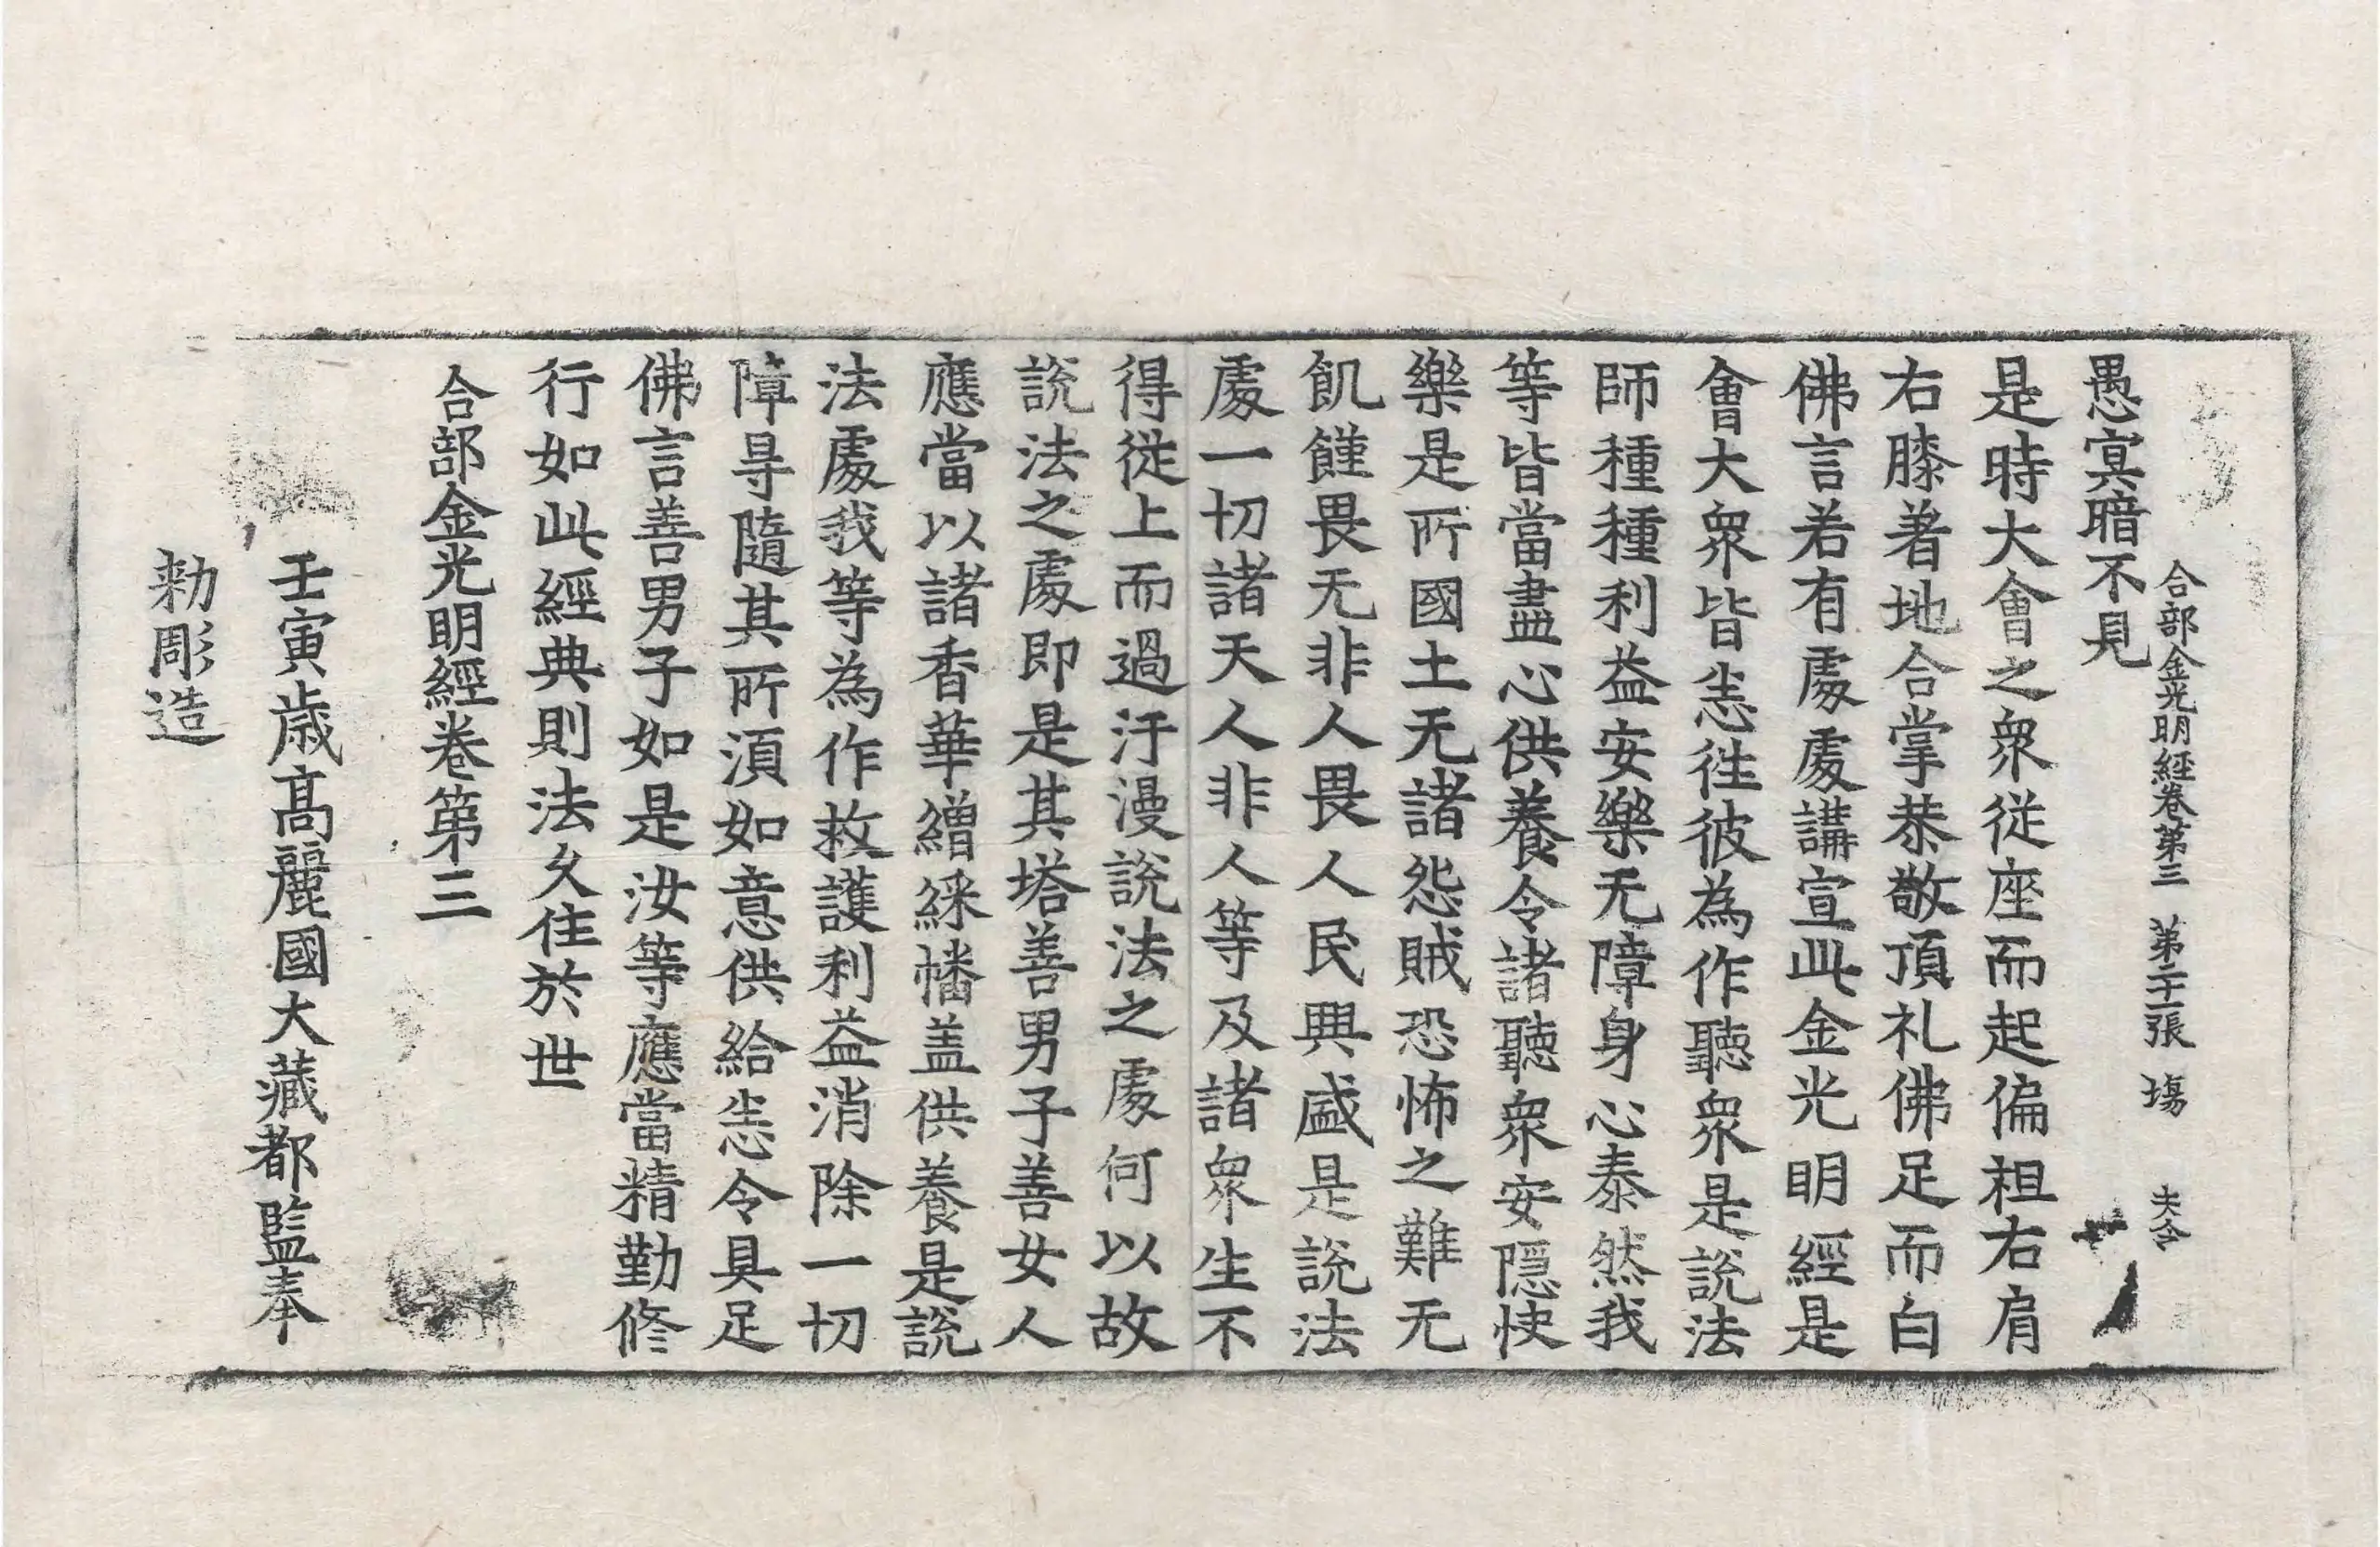 合部金光明經卷第三 第二十一張 塲
夫合
愚㝠暗不見
是時大會之衆從座而起偏袒右肩
右膝著地合掌恭敬頂礼佛足而白
佛言若有處處講宣此金光明經是
會大衆皆悉徃彼為作聽衆是說法
師種種利益安樂无障身心泰然我
等皆當盡心供養令諸聽衆安隱快
樂是所國土无諸怨賊恐怖之難无
飢饉畏无非人畏人民興盛是說法
處一切諸天人非人等及諸衆生不
得從上而過汙漫說法之處何以故
說法之處即是其塔善男子善女人
應當以諸香華繒綵幡盖供養是說
法處我等為作救護利益消除一切
障㝵隨其所湏如意供給悉令具足
佛言善男子如是汝等應當精勤修
行如此經典則法久住於世
合部金光明經卷第三
壬寅歲高麗國大藏都監奉
勑彫造